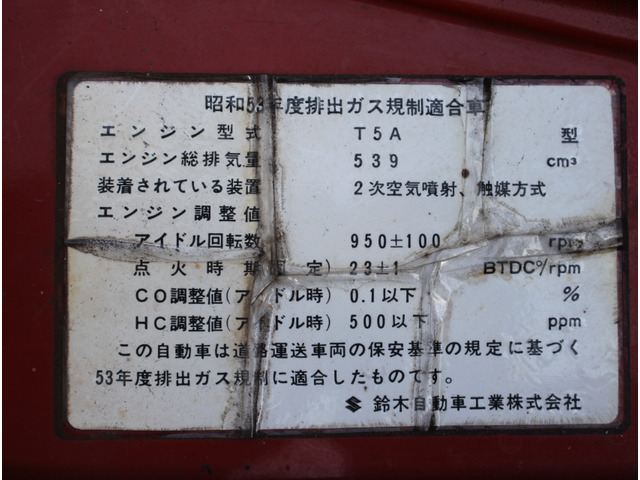 昭和53年度排出ガス規制適合車
エンジン型式 T5A 型
エンジン総排気量 539 cm³
装着されている装置 2次空気噴射、触媒方式
エンジン調整値
アイドル回転数 950±100 rpm
点火時期(固定) 23±1 BTDC°/rpm
CO調整値(アイドル時) 0.1以下 %
HC調整値(アイドル時) 500以下 ppm
この自動車は道路運送車両の保安基準の規定に基づく
53年度排出ガス規制に適合したものです。
鈴木自動車工業株式会社